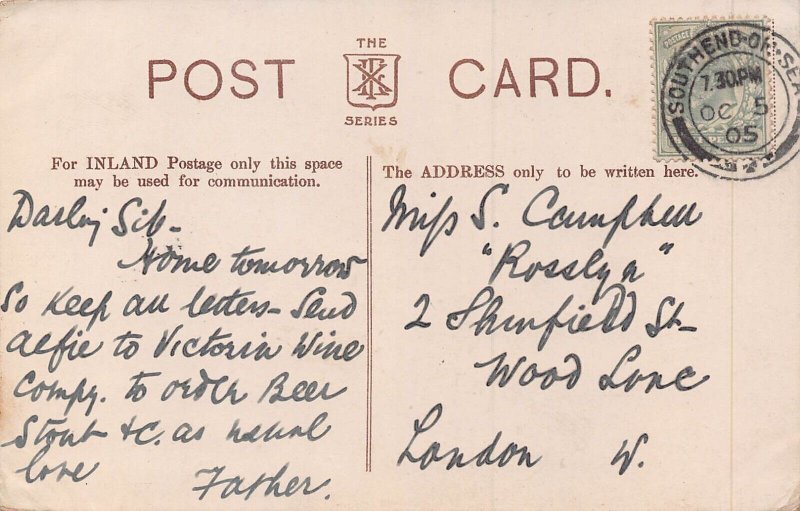 THE
POST CARD.
SERIES
SOUTHEND-ON-SEA
7.30PM
OC 5
05
POSTAGE
For INLAND Postage only this space
may be used for communication.
The ADDRESS only to be written here.
Darling Sib-
Home tomorrow
So keep all letters - Send
Alfie to Victoria Wine
Compy. to order Beer
Stout &c. as usual
love
Father.
Miss S. Campbell
"Rosslyn"
2 Shinfield St-
Wood Lane
London W.